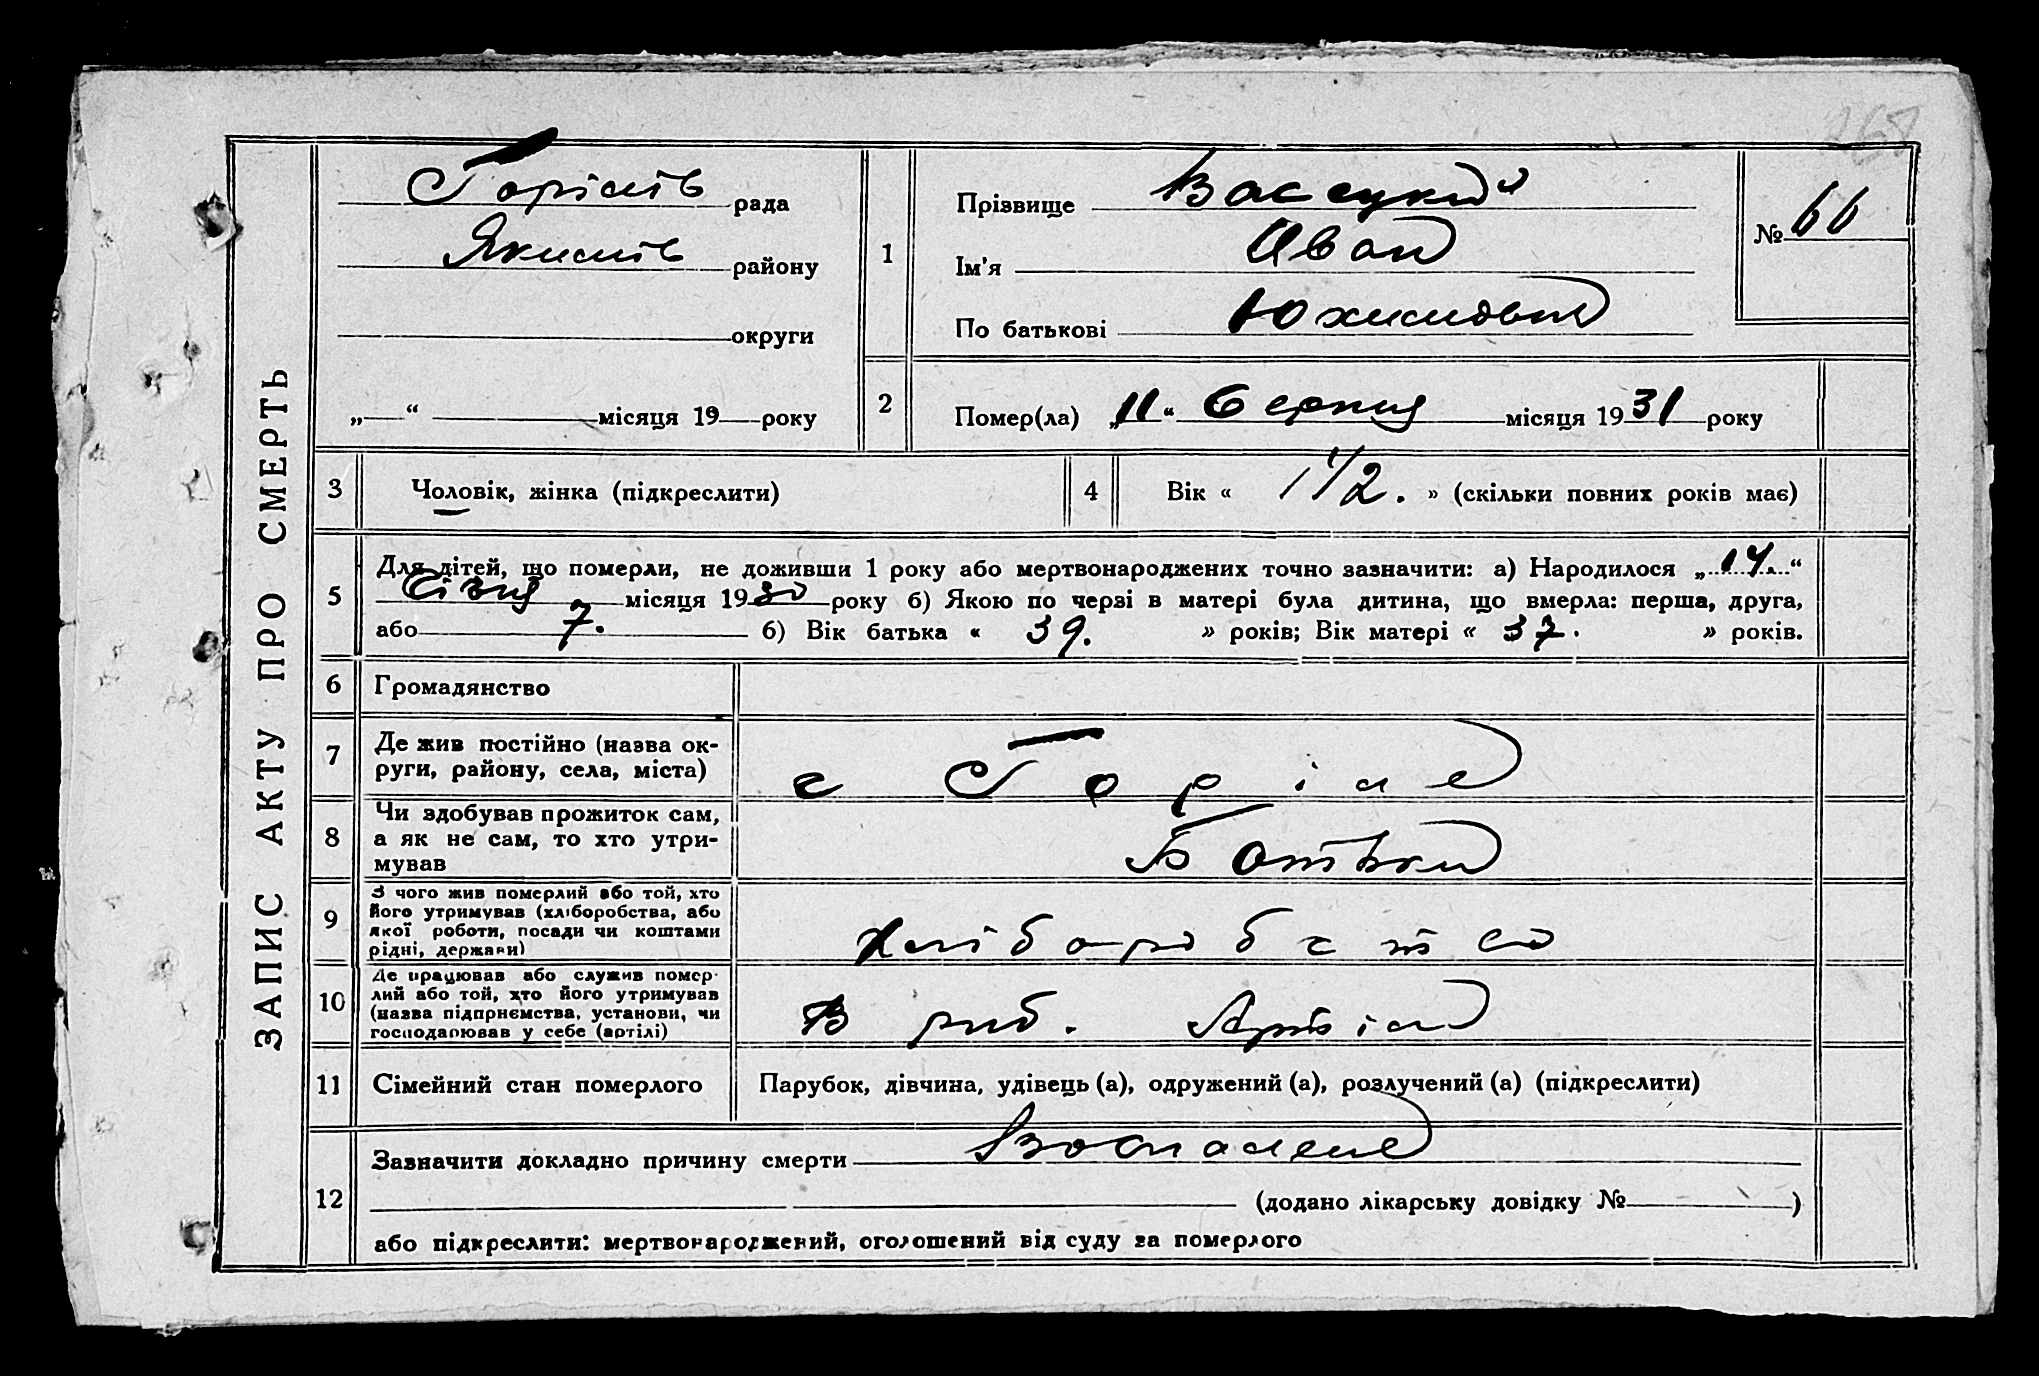 ЗАПИС АКТУ ПРО СМЕРТЬ
268
рада
району
округи
„ “ місяця 19 року
1
Прізвище Васецкий
Ім'я Иван
По батькові
№ 66
2
Помер(ла) „11“ Серпня місяця 1931 року
3 Чоловік, жінка (підкреслити)
4 Вік « 1 1/2. » (скільки повних років має)
5
Для дітей, що померли, не доживши 1 року або мертвонароджених точно зазначити: а) Народилося „14.“
Січня місяця 1930 року б) Якою по черзі в матері була дитина, що вмерла: перша, друга,
або 7. б) Вік батька « 39. » років; Вік матері « 37. » років.
6 Громадянство
7 Де жив постійно (назва ок-
руги, району, села, міста)
с
8 Чи здобував прожиток сам,
а як не сам, то хто утри-
мував
Батьки
9 З чого жив померлий або той, хто
його утримував (хліборобства, або
якої роботи, посади чи коштами
рідні, держави)
хліборобство
10 Де працював або служив помер-
лий або той, хто його утримував
(назва підпрнємства, установи, чи
господарював у себе (артілі)
В риб. Артіл
11 Сімейний стан померлого
Парубок, дівчина, удівець (а), одружений (а), розлучений (а) (підкреслити)
12
Зазначити докладно причину смерти
(додано лікарську довідку № )
або підкреслити: мертвонароджений, оголошений від суду за померлого